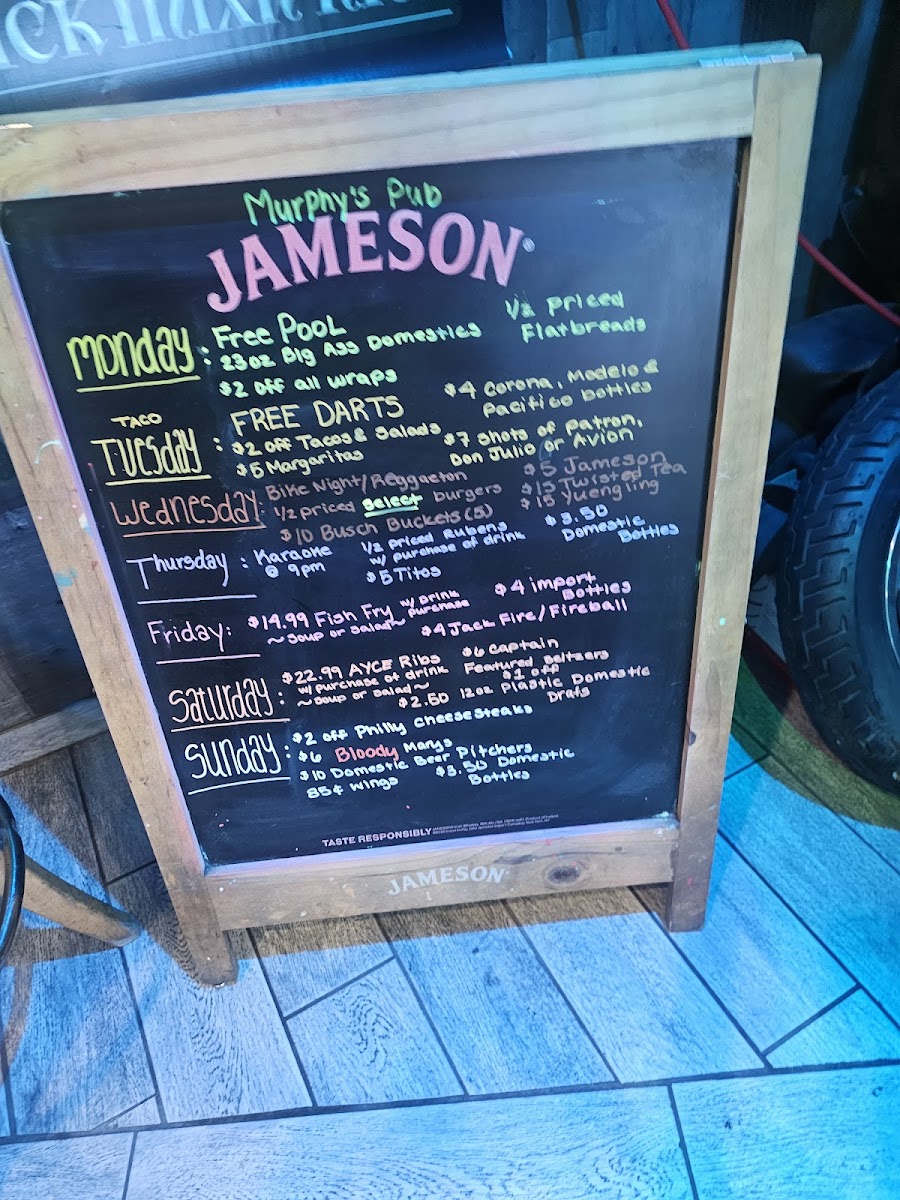 Murphy's Pub
JAMESON
Monday : Free Pool
23oz Big Ass Domestics
$2 off all wraps
1/2 priced
Flatbreads
TACO
TUESday : FREE DARTS
$2 off Tacos & Salads
$5 Margaritas
$4 Corona, Modelo &
Pacifico bottles
$7 shots of Patron,
Don Julio or Avion
Wednesday: Bike Night/Reggaeton
1/2 priced select burgers
$10 Busch Buckets (5)
$5 Jameson
$15 Twisted Tea
$15 Yuengling
Thursday : Karaoke
@ 9pm
1/2 priced Rubens
w/ purchase of drink
$5 Titos
$3.50
Domestic
Bottles
Friday: $14.99 Fish Fry w/ Drink purchase
~ soup or salad ~
$4 import
Bottles
$4 Jack Fire/Fireball
Saturday : $22.99 AYCE Ribs
w/ purchase of drink
~ soup or salad ~
$6 Captain
Featured seltzers
$1 off
$2.50 12oz Plastic Domestic
Drafs
Sunday : $2 off Philly cheesesteaks
$6 Bloody Marys
$10 Domestic Beer Pitchers
85¢ wings
$3.50 Domestic
Bottles
TASTE RESPONSIBLY
JAMESON